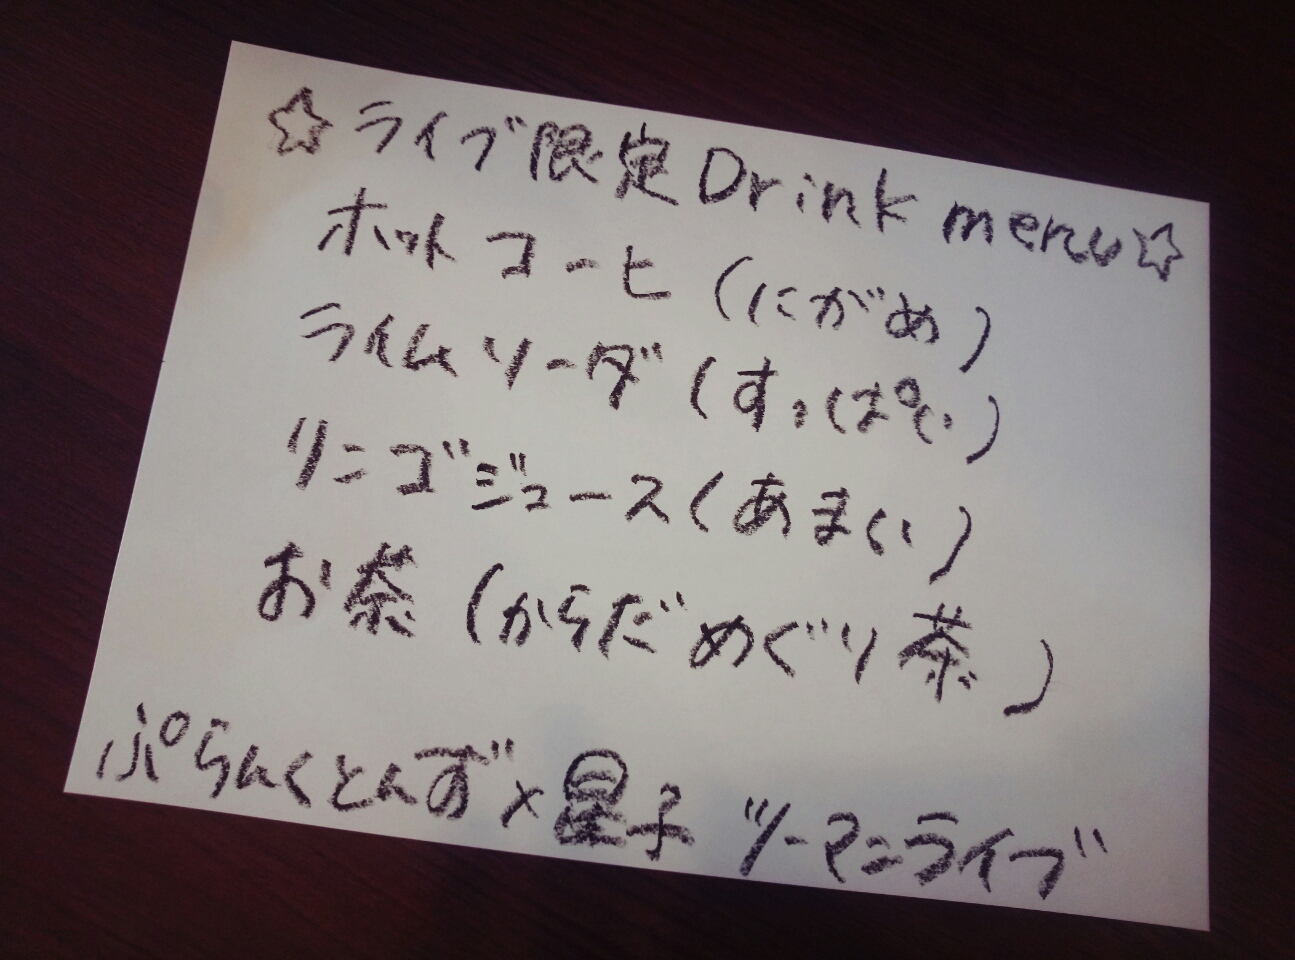 ☆ライブ限定Drink menu☆
ホットコーヒ（にがめ）
ライムソーダ（すっぱい）
リンゴジュース（あまい）
お茶（からだめぐり茶）
ぷらんくとんず×星子 ツーマンライブ